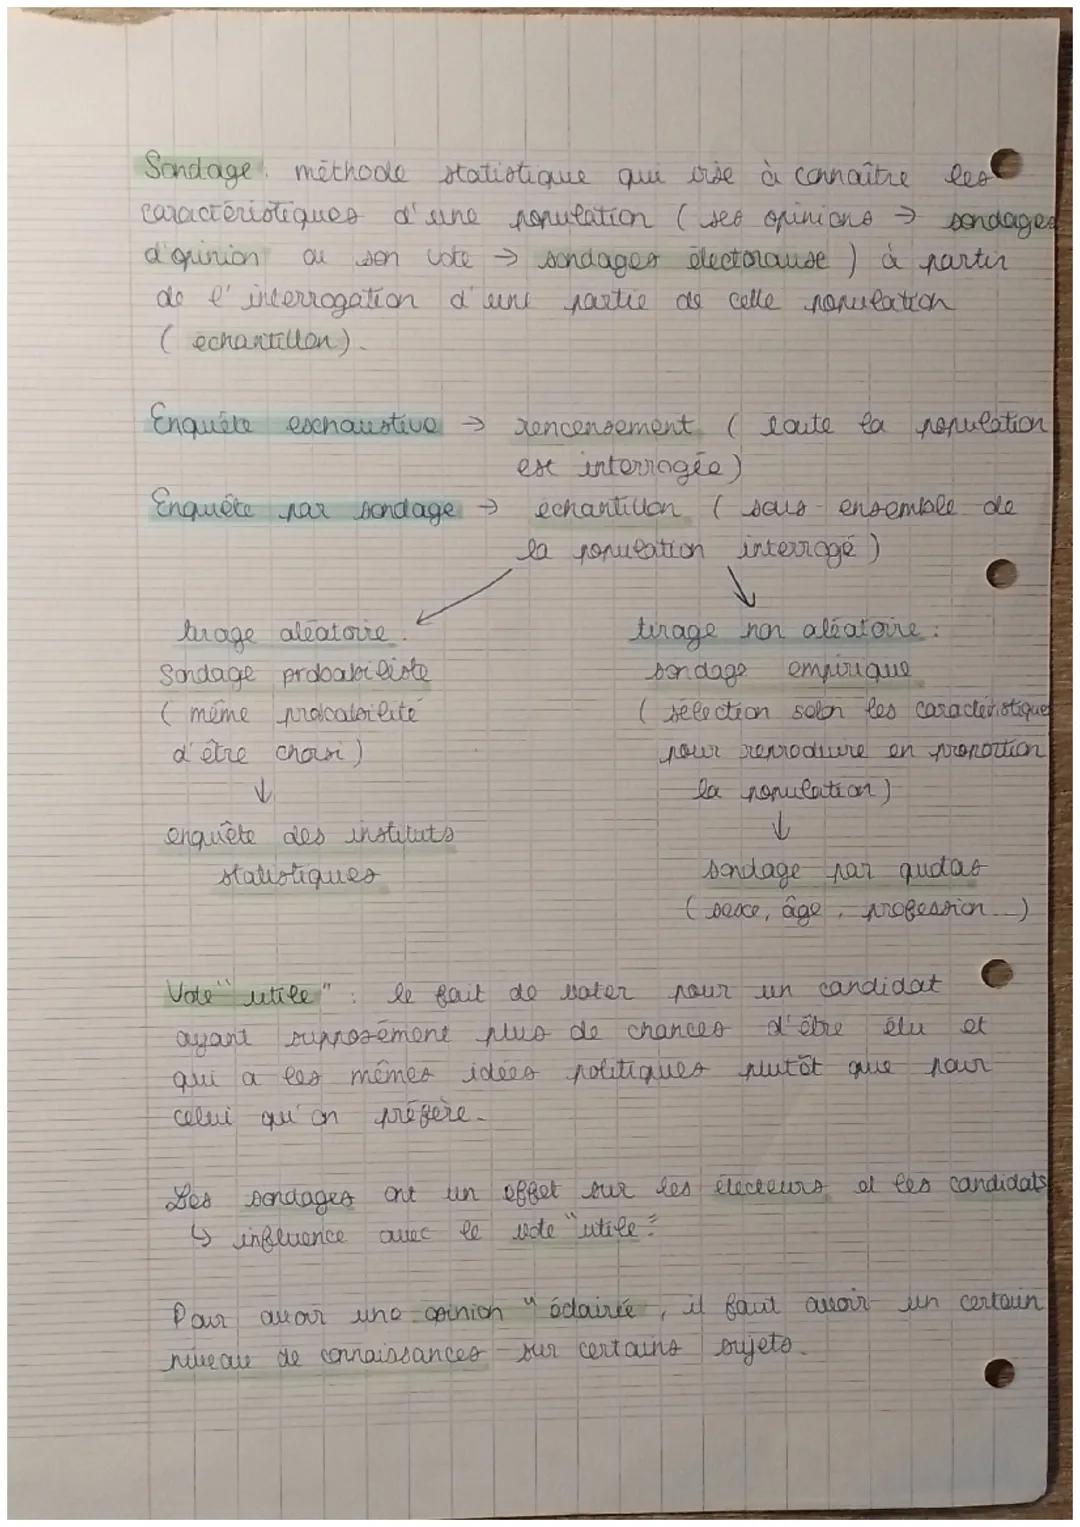 Sondage : méthode statistique qui vise à connaître les
caractéristiques d'une population ( ses opinions → sondages
d'opinion ou son vote → sondages électoraux ) à partir
de l'interrogation d'une partie de cette population
( echantillon ).
Enquête exhaustive → rencensement ( toute la population
est interrogée )
Enquête par sondage → échantillon ( sous-ensemble de
la population interrogé )
tirage aléatoire :
sondage probabiliste
( même probabilité
d'être choisi )
↓
enquête des instituts
statistiques
tirage non aléatoire :
sondage empirique
( sélection selon les caractéristiques
pour reproduire en proportion
la population )
↓
sondage par quotas
( sexe, âge, profession... )
Vote "utile" : le fait de voter pour un candidat
ayant supposément plus de chances d'être élu et
qui a les mêmes idées politiques plutôt que pour
celui qu'on préfère.
Les sondages ont un effet sur les électeurs et les candidats
↳ influence avec le vote "utile".
Pour avoir une opinion " éclairée , il faut avoir un certain
niveau de connaissances sur certains sujets.